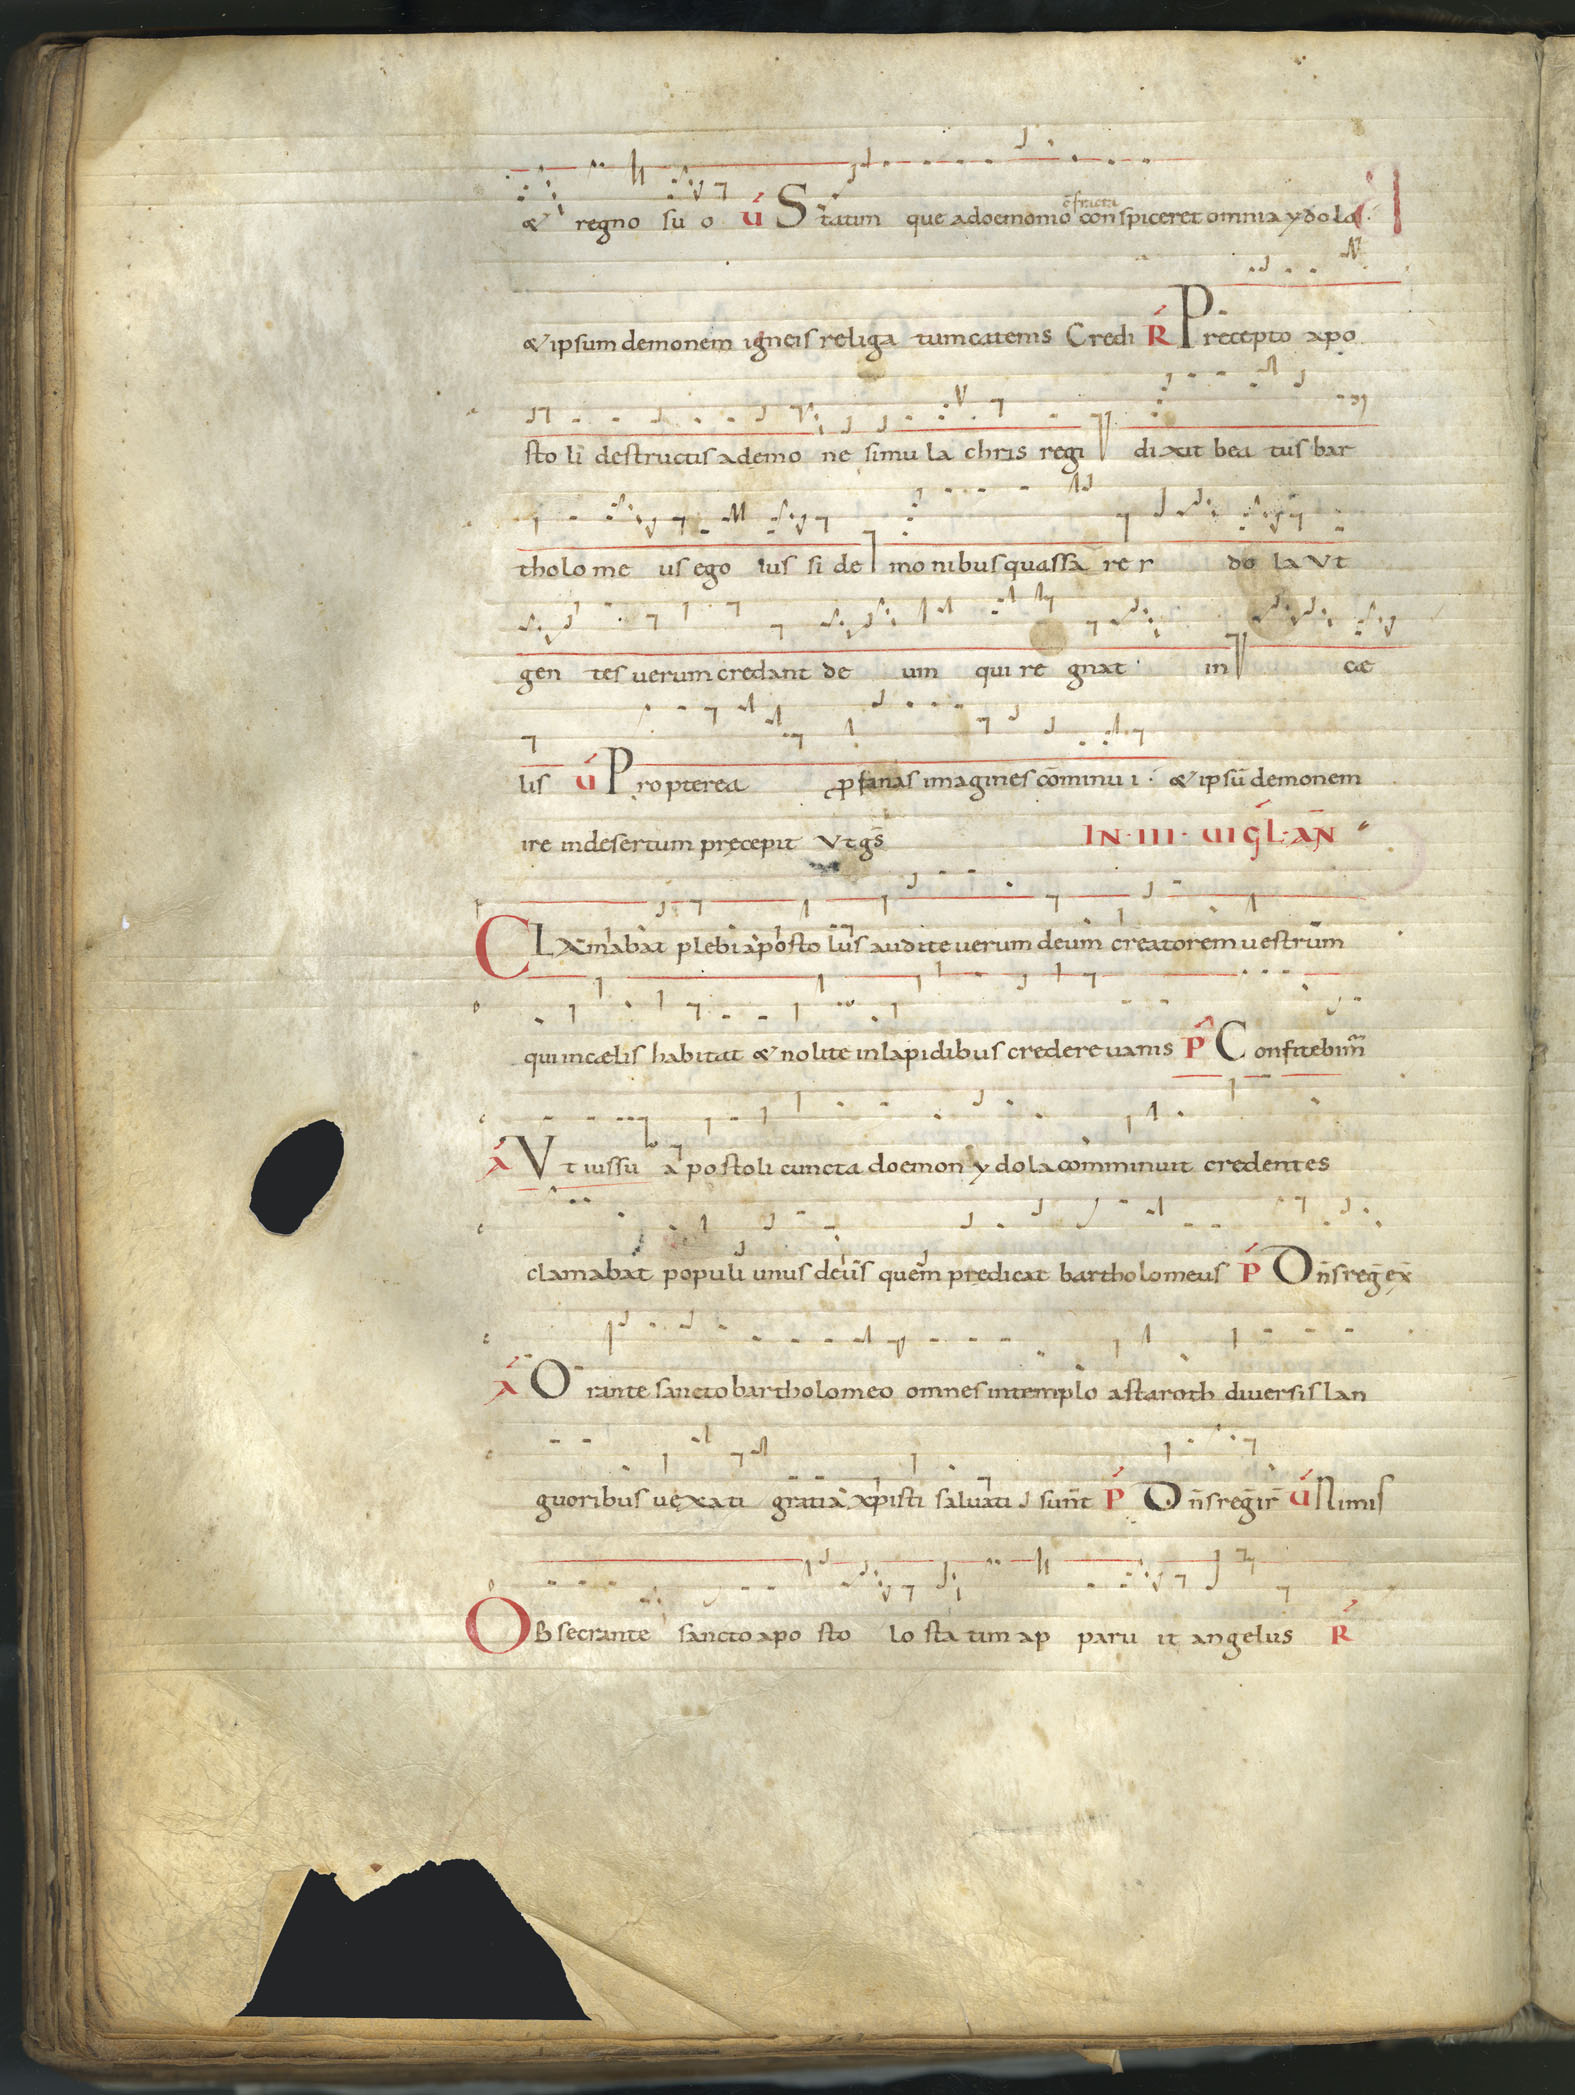 & regno su o V̓ Statim que a doemonio conspiceret omnia ydola
& ipsum demonem igneis religa tum catenis Credi R̓ Precepto apo
sto li destructis a demo ne simu la chris regi dixit bea tus bar
tholo me us ego ius si de monibus quassa re y do la Vt
gen tes uerum credant de um qui re gnat in cæ
lis V̓ Propterea ꝓfanas imagines cōminu i · & ipsū demonem
ire in desertum pręcepit Vt gs̄
IN · III · UIGL · AN̄
CLamabat plebi aposto lus audite uerum deum creatorem uestrum
qui in cælis habitat & nolite in lapidibus credere uanis P̓ Confitebim̄
A̓ Vt iussu apostoli cuncta doemon ydola comminuit credentes
clamabat populi unus deus quem predicat bartholomeus P̓ Dn̄s reḡ ex̄
A̓ Orante sancto bartholomeo omnes in templo astaroth diuersis lan
guoribus uexati gratia xpisti saluati sunt P̓ Dn̄s reḡ ir̄ V̓ Nimis
OBsecrante sancto apo sto lo sta tim ap paru it angelus R̓